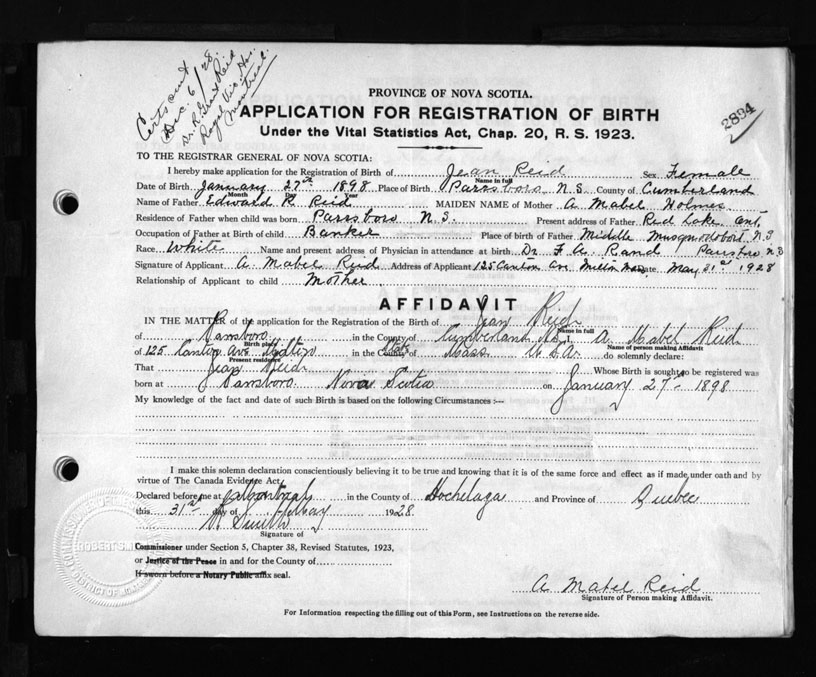 Certs out
Dec. 6/28.
Dr. R. Grant Reid
Royal Vic. Hos.
Montreal.
2894
PROVINCE OF NOVA SCOTIA.
APPLICATION FOR REGISTRATION OF BIRTH
Under the Vital Statistics Act, Chap. 20, R. S. 1923.
TO THE REGISTRAR GENERAL OF NOVA SCOTIA:
I hereby make application for the Registration of Birth of Jean Reid Sex Female
Name in full
Date of Birth January 27th 1898 Place of Birth Parrsboro N.S. County of Cumberland
Month Day Year
Name of Father Edward R. Reid MAIDEN NAME of Mother A Mabel Holmes
Residence of Father when child was born Parrsboro N.S. Present address of Father Red Lake Ont.
Occupation of Father at Birth of child Banker Place of Birth of Father Middle Musquodoboit N S
Race White Name and present address of Physician in attendance at birth Dr. F. A. Rand Parrsboro N S
Signature of Applicant A. Mabel Reid Address of Applicant 125 Canton Av. Milton Mass Date May 31st 1928
Relationship of Applicant to child Mother
AFFIDAVIT
IN THE MATTER of the application for the Registration of the Birth of Jean Reid
Name in full
of Parrsboro in the County of Cumberland N.S. I A. Mabel Reid
Birth place Name of person making Affidavit
of 125 Canton Ave Milton in the County State of Mass U.S.A. do solemnly declare:
Present residence
That Jean Reid Whose Birth is sought to be registered was
born at Parrsboro Nova Scotia on January 27th 1898
My knowledge of the fact and date of such Birth is based on the following Circumstances :—
I make this solemn declaration conscientiously believing it to be true and knowing that it is of the same force and effect as if made under oath and by
virtue of The Canada Evidence Act.
Declared before me at Montreal in the County of Hochelaga and Province of Quebec
this 31st day of May 1928
Smith
Signature of
Commissioner under Section 5, Chapter 38, Revised Statutes, 1923,
or Justice of the Peace in and for the County of
If sworn before a Notary Public affix seal.
A Mabel Reid
Signature of Person making Affidavit.
For Information respecting the filling out of this Form, see Instructions on the reverse side.